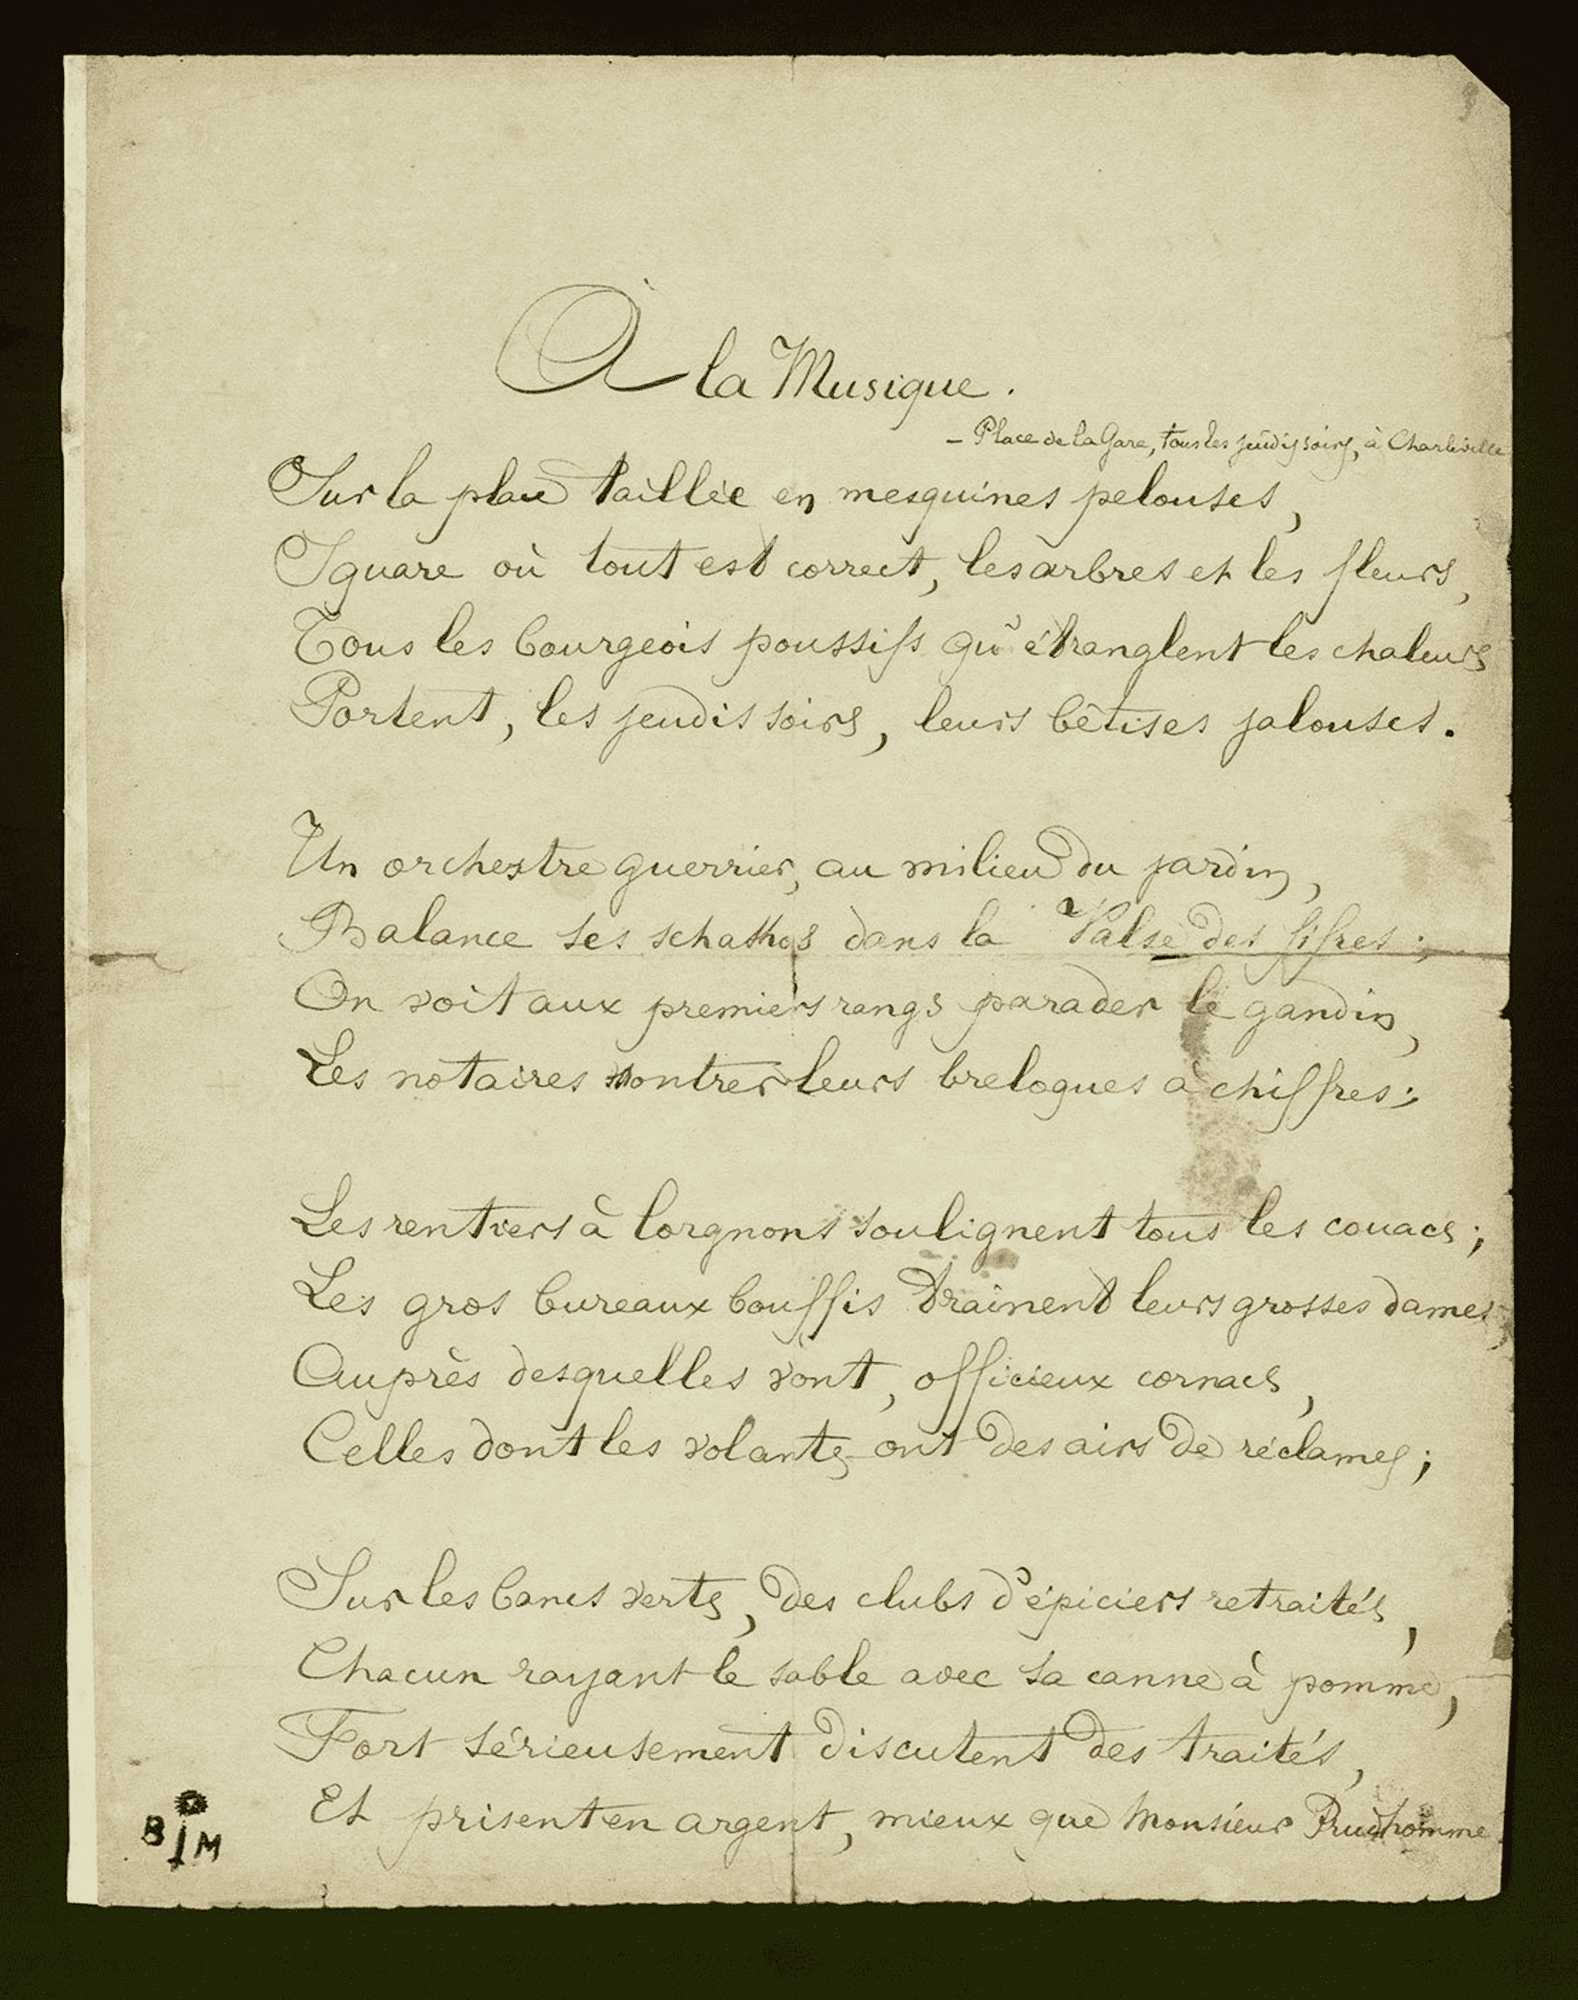 À la Musique.
– Place de la Gare, tous les jeudis soirs, à Charleville
Sur la place taillée en mesquines pelouses,
Square où tout est correct, les arbres et les fleurs,
Tous les bourgeois poussifs qu'étranglent les chaleurs
Portent, les jeudis soirs, leurs bêtises jalouses.
Un orchestre guerrier, au milieu du jardin,
Balance ses schakos dans la Valse des fifres :
On voit aux premiers rangs parader le gandin,
Les notaires montrer leurs breloques à chiffres :
Les rentiers à lorgnons soulignent tous les couacs ;
Les gros bureaux bouffis traînent leurs grosses dames,
Auprès desquelles vont, officieux cornacs,
Celles dont les volants ont des airs de réclames ;
Sur les bancs verts, des clubs d'épiciers retraités,
Chacun rayant le sable avec sa canne à pomme,
Fort sérieusement discutent des traités,
Et prisent en argent, mieux que monsieur Prudhomme
B M